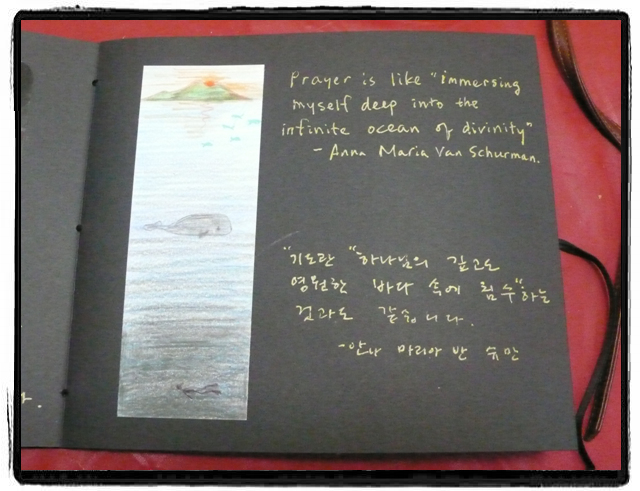 Prayer is like "immersing
myself deep into the
infinite ocean of divinity"
- Anna Maria Van Schurman.
"기도란 "하나님의 깊고도
영원한 바다 속에 침수"하는
것과도 같습니다.
-안나 마리아 반 슈만